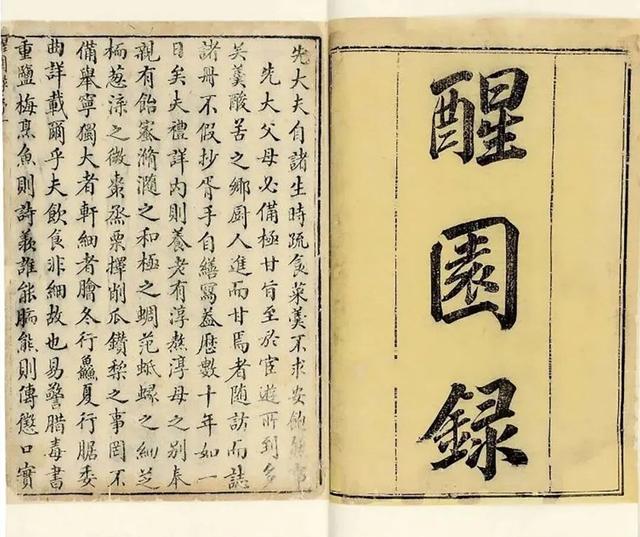 醒園録
先大夫自諸生時疏食菜羹不求安飽
先大父母必備極甘旨至於宦遊所到多
吳羹酸苦之鄉廚人進而甘焉者随訪而誌
諸册不假抄胥手自繕寫蓋歴數十年如一
日矣夫禮詳内則養老有淳熬淳母之别奉
親有飴蜜滫瀡之和極之蜩范蚳蝝之細芝
栭葱渿之微棗烝栗擇削瓜鑽梨之事罔不
備舉寧獨大者軒細者膾冬行鱻夏行腒委
曲詳載爾乎夫飲食非細故也易警腊毒書
重鹽梅烹魚則詩羨誰能胹熊則傳懲口實